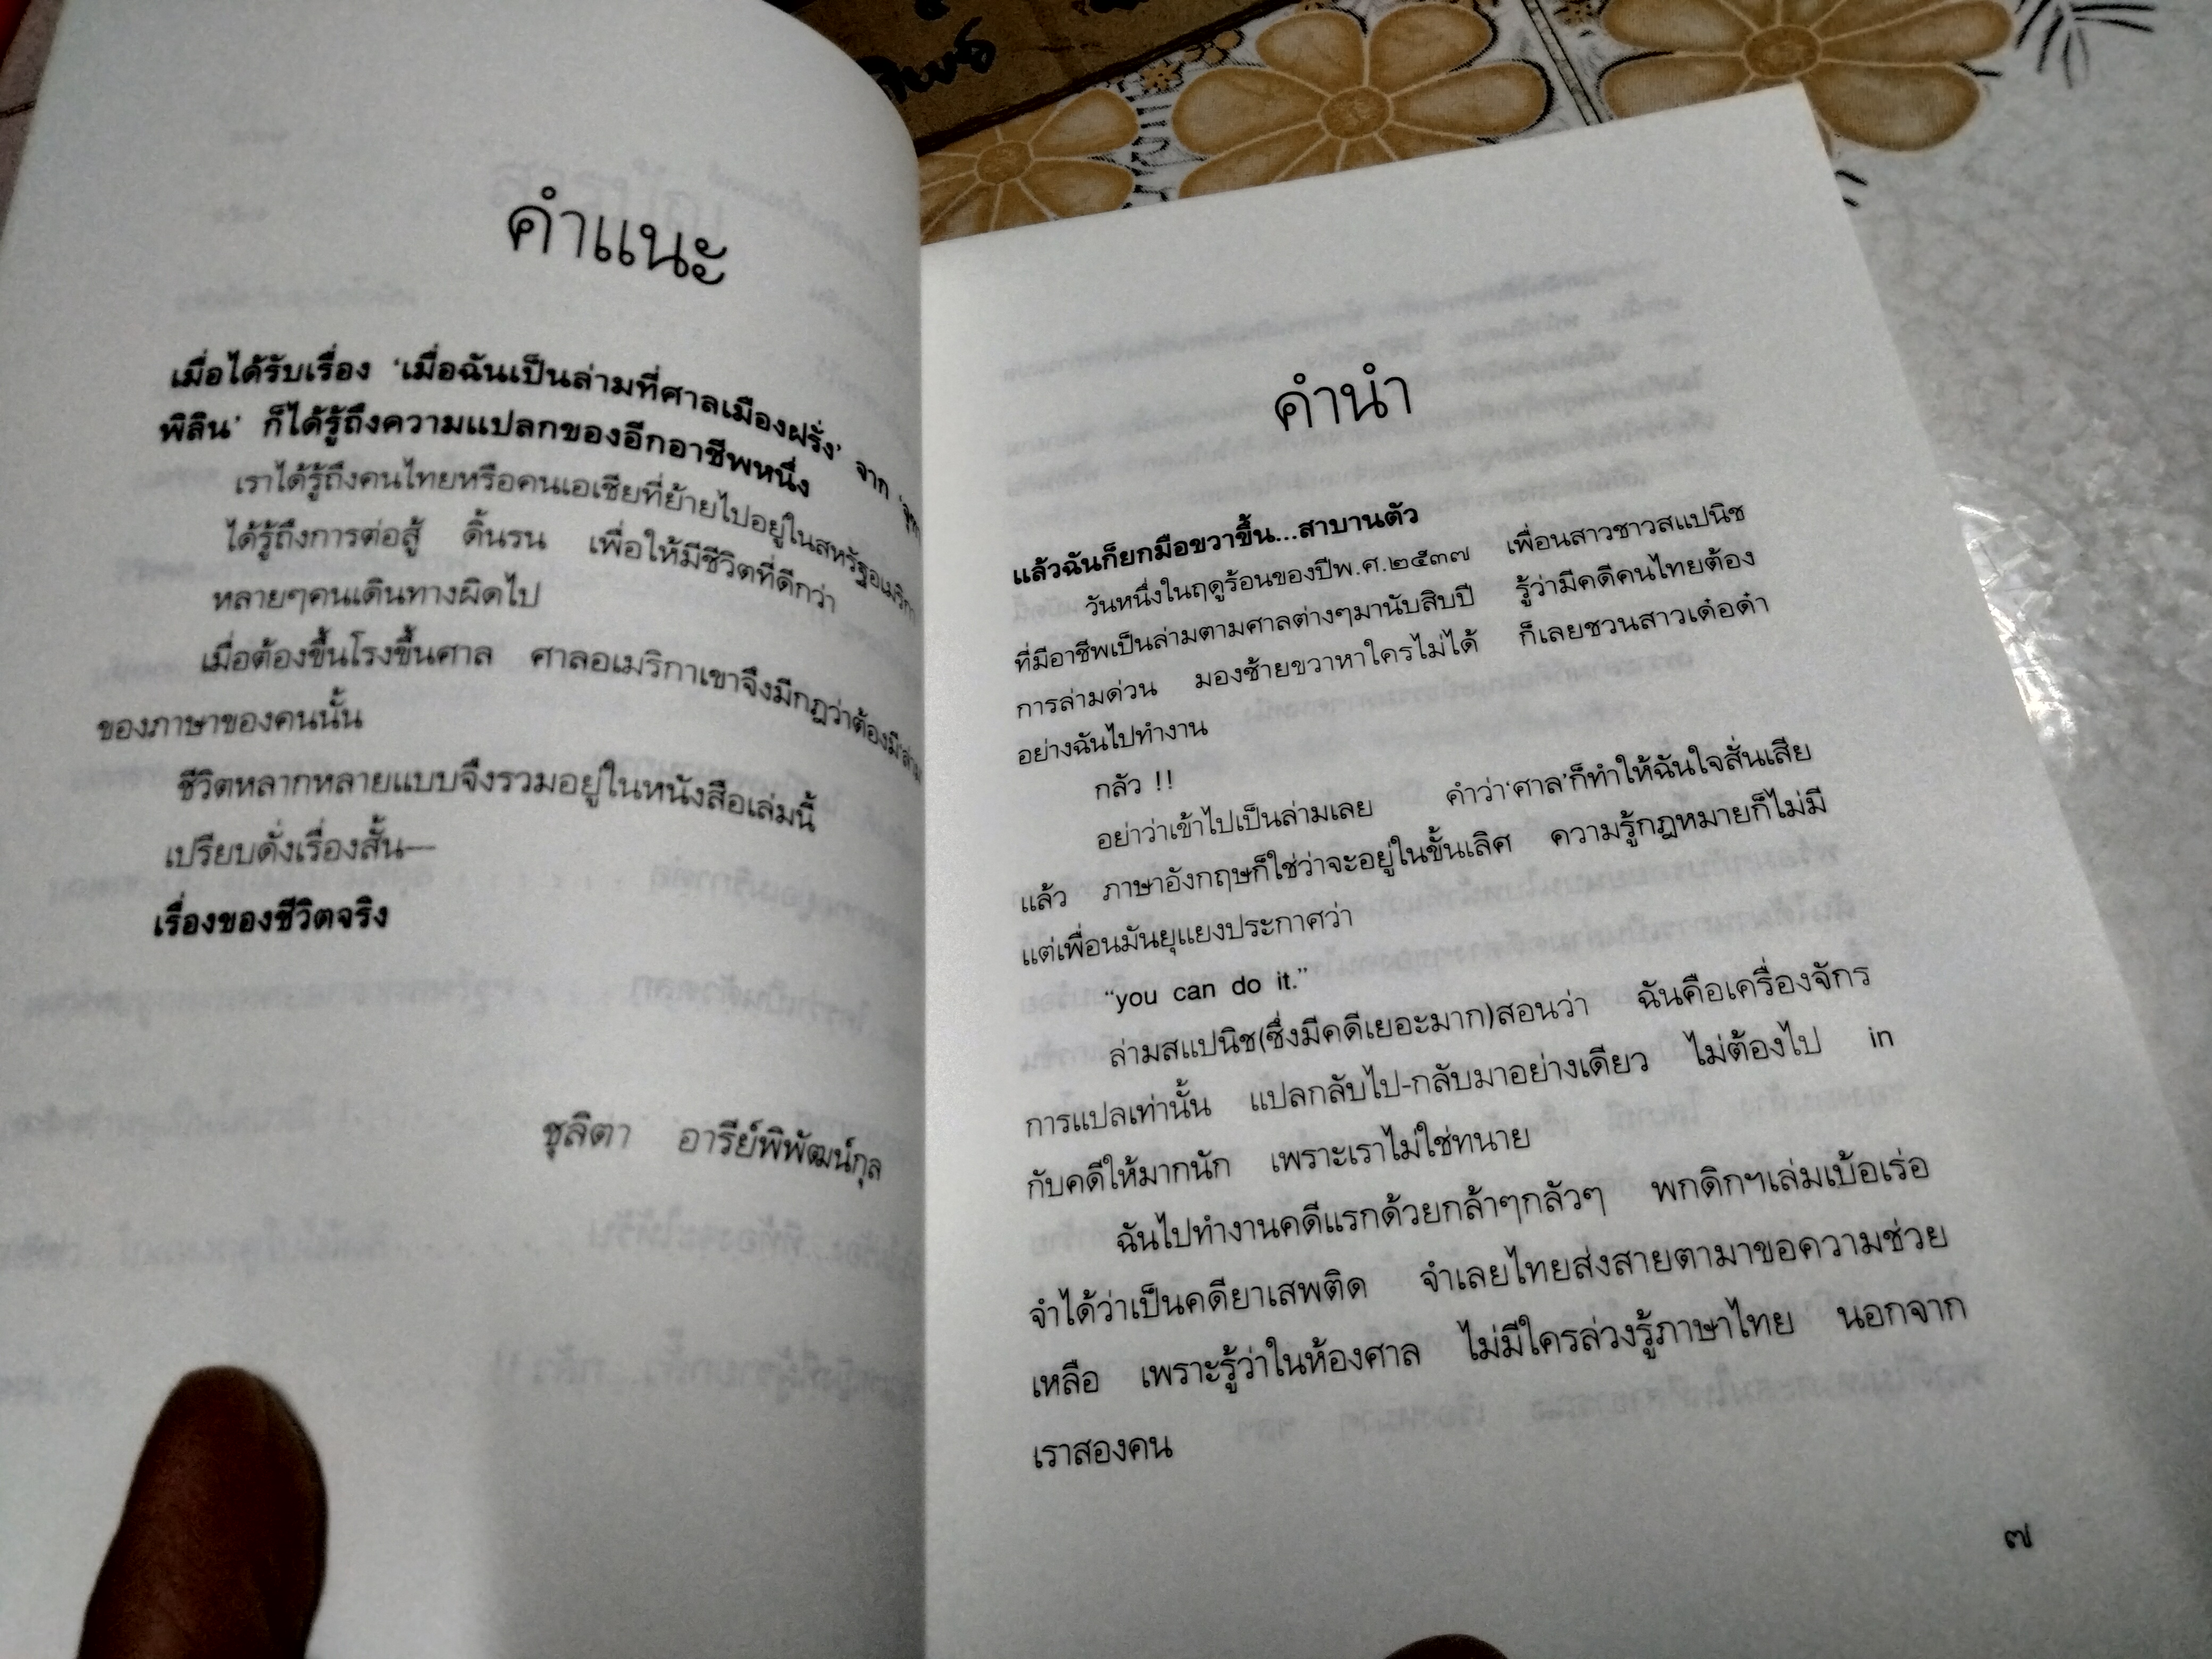 คำแนะ
เมื่อได้รับเรื่อง 'เมื่อฉันเป็นล่ามที่ศาลเมืองฝรั่ง' จาก
พิลิน' ก็ได้รู้ถึงความแปลกของอีกอาชีพหนึ่ง
เราได้รู้ถึงคนไทยหรือคนเอเชียที่ย้ายไปอยู่ในสหรัฐอเมริกา
ได้รู้ถึงการต่อสู้ ดิ้นรน เพื่อให้มีชีวิตที่ดีกว่า
หลายๆคนเดินทางผิดไป
เมื่อต้องขึ้นโรงขึ้นศาล ศาลอเมริกาเขาจึงมีกฎว่าต้องมีล่าม
ของภาษาของคนนั้น
ชีวิตหลากหลายแบบจึงรวมอยู่ในหนังสือเล่มนี้
เปรียบดั่งเรื่องสั้น—
เรื่องของชีวิตจริง
ชุลิตา อารีย์พิพัฒน์กุล
คำนำ
แล้วฉันก็ยกมือขวาขึ้น...สาบานตัว
วันหนึ่งในฤดูร้อนของปีพ.ศ.๒๕๓๗ เพื่อนสาวชาวสแปนิช
ที่มีอาชีพเป็นล่ามตามศาลต่างๆมานับสิบปี รู้ว่ามีคดีคนไทยต้อง
การล่ามด่วน มองซ้ายขวาหาใครไม่ได้ ก็เลยชวนสาวเด๋อด๋า
อย่างฉันไปทำงาน
กลัว !!
อย่าว่าเข้าไปเป็นล่ามเลย คำว่า'ศาล'ก็ทำให้ฉันใจสั่นเสีย
แล้ว ภาษาอังกฤษก็ใช่ว่าจะอยู่ในขั้นเลิศ ความรู้กฎหมายก็ไม่มี
แต่เพื่อนมันยุแยงประกาศว่า
"you can do it."
ล่ามสแปนิช(ซึ่งมีคดีเยอะมาก)สอนว่า ฉันคือเครื่องจักร
การแปลเท่านั้น แปลกลับไป-กลับมาอย่างเดียว ไม่ต้องไป in
กับคดีให้มากนัก เพราะเราไม่ใช่ทนาย
ฉันไปทำงานคดีแรกด้วยกล้าๆกลัวๆ พกดิกฯเล่มเบ้อเร่อ
จำได้ว่าเป็นคดียาเสพติด จำเลยไทยส่งสายตามาขอความช่วย
เหลือ เพราะรู้ว่าในห้องศาล ไม่มีใครล่วงรู้ภาษาไทย นอกจาก
เราสองคน
๗